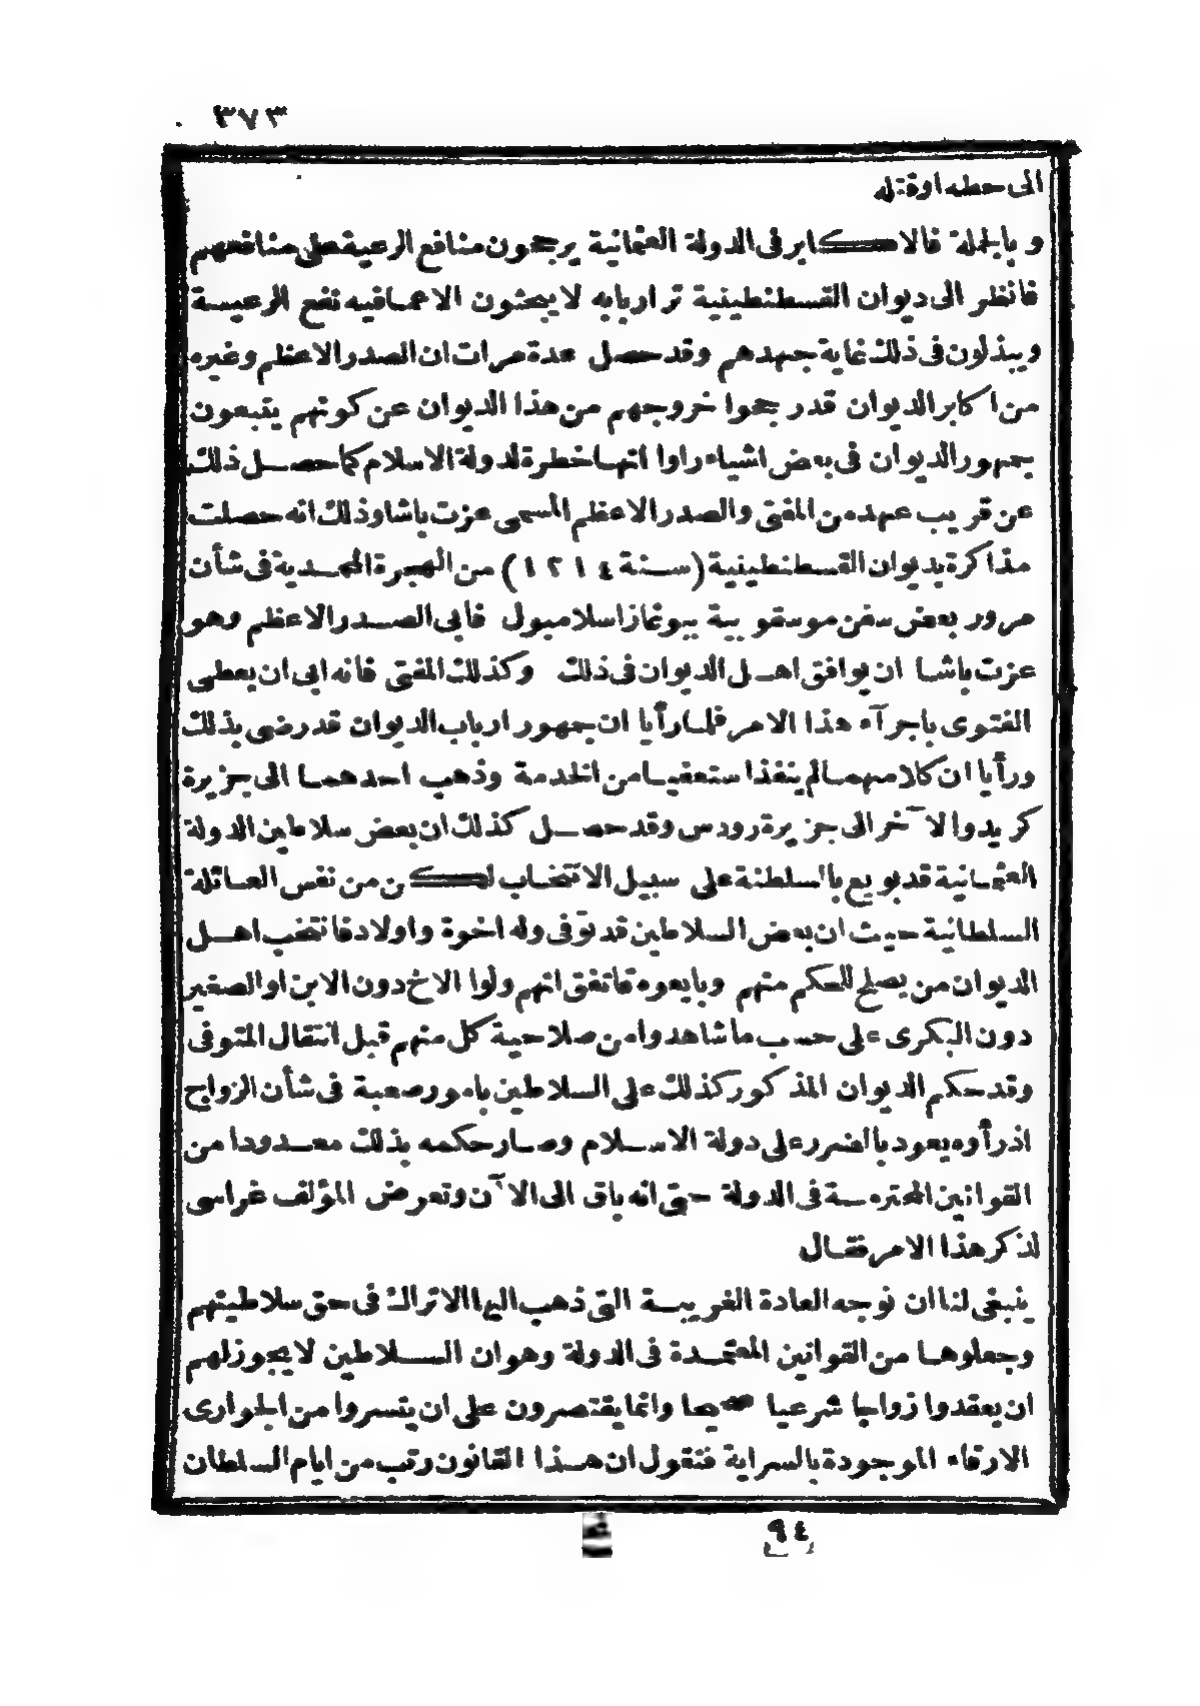 ٣٧٣
الى حطه او قتله
وبالجملة فالاكابر فى الدولة العثمانية يرجحون منافع الرعية على منافعهم
فانظر الى ديوان القسطنطينية تر اربابه لا يبحثون الا عما فيه نفع الرعيسة
ويبذلون فى ذلك غاية جهدهم وقد حصل عدة مرات ان الصدر الاعظم وغيره
من اكابر الديوان قد رجحوا خروجهم من هذا الديوان عن كونهم يتبعون
جمهور الديوان فى بعض اشياء راوا انها خطرة لدولة الاسلام كما حصل ذلك
عن قريب عهد من المفتى والصدر الاعظم المسمى عزت باشا وذلك انه حصلت
مذاكرة بديوان القسطنطينية (سنة ١٢١٤) من الهجرة المحمدية فى شأن
مرور بعض سفن موسقوبية ببوغاز اسلامبول فابى الصدر الاعظم وهو
عزت باشا ان يوافق اهل الديوان فى ذلك وكذلك المفتى فانه ابى ان يعطى
الفتوى باجرآء هذا الامر فلما رأيا ان جمهور ارباب الديوان قد رضى بذلك
ورأيا ان كلامهما لم ينفذ استعفيا من الخدمة وذهب احدهما الى جزيرة
كريد والآخر الى جزيرة رودس وقد حصل كذلك ان بعض سلاطين الدولة
العثمانية قد بويع بالسلطنة على سبيل الانتخاب لكن من نفس العائلة
السلطانية حيث ان بعض السلاطين قد توفى وله اخوة واولاد فانتخب اهل
الديوان من يصلح للحكم منهم وبايعوه فاتفق انهم ولوا الاخ دون الابن او الصغير
دون البكرى على حسب ما شاهدوا من صلاحية كل منهم قبل انتقال المتوفى
وقد حكم الديوان المذكور كذلك على السلاطين بامور صعبة فى شأن الزواج
اذ رأوه يعود بالضرر على دولة الاسلام وصار حكمه بذلك معدودا من
القوانين المحترمة فى الدولة حتى انه باق الى الآن وتعرض المؤلف غراسى
لذكر هذا الامر فقال
ينبغى لنا ان نوجه العادة الغريبة التى ذهب اليها الاتراك فى حق سلاطينهم
وجعلوها من القوانين المعتمدة فى الدولة وهو ان السلاطين لا يجوز لهم
ان يعقدوا زواجا شرعيا صحيحا وانما يقتصرون على ان يتسروا من الجوارى
الارقاء الموجودة بالسراية فنقول ان هذا القانون رتب من ايام السلطان
٩٤